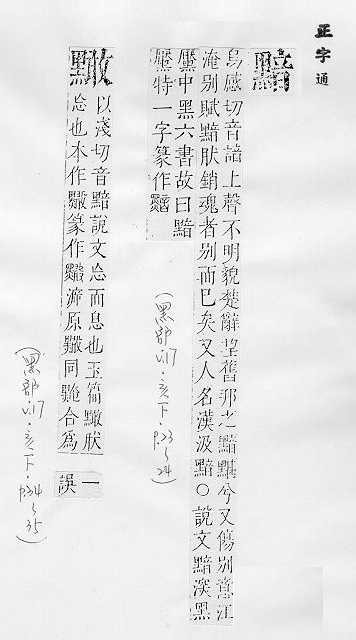 正字通
黯
烏感切音諳上聲不明貌楚辭望舊邦之黯黮兮又傷別意江
淹別賦黯肰銷魂者別而已矣又人名漢汲黯○說文黯深黑
黶中黑六書故曰黯
黶特一字篆作
(黑部.V.17.亥下.p.23~24)
以淺切音黯說文忘而息也玉篇肰一
忘也本作篆作原同合爲誤
(黑部.V.17.亥下.p.34~35)